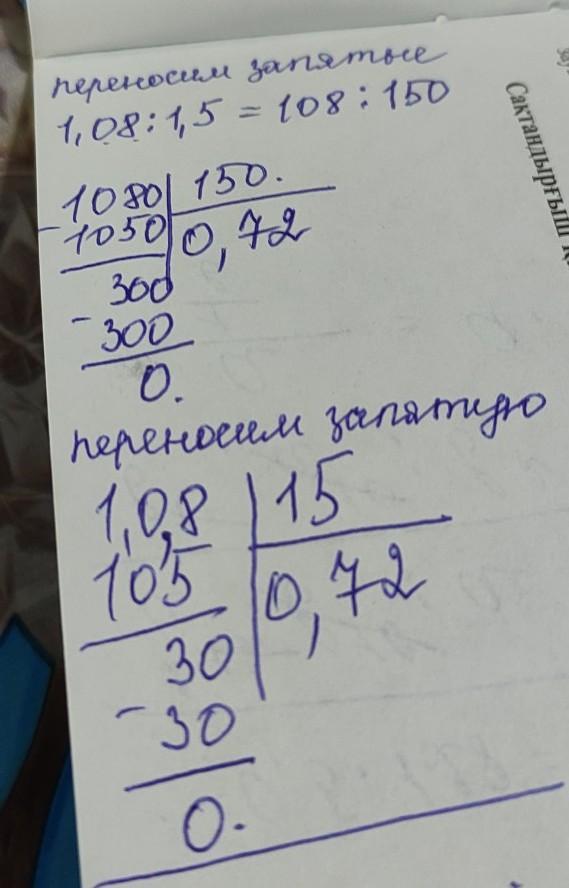 переносим запятые
1,08 : 1,5 = 108 : 150
1080 150.
- 1050 0,72
300
- 300
0.
переносим запятую
1,0,8 15
105 0,72
30
- 30
0.
Сақтандырғыш